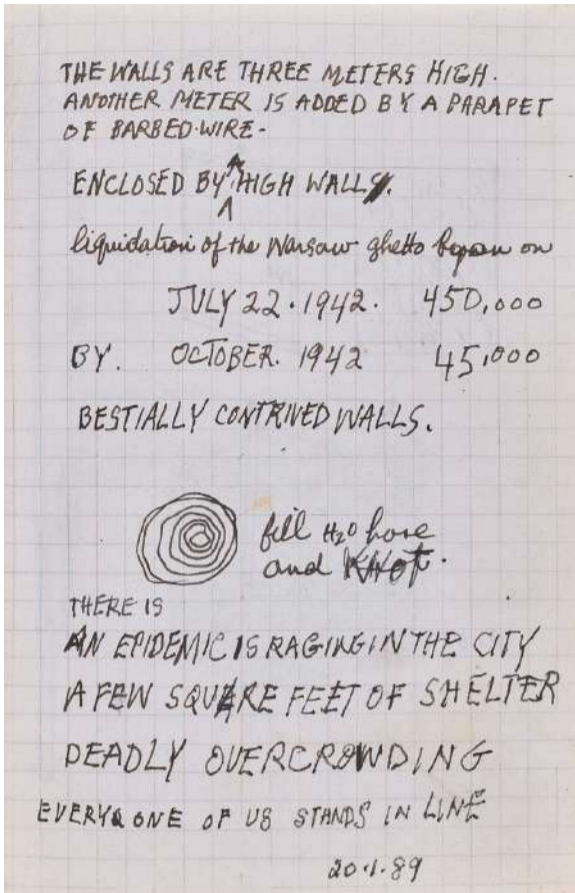 THE WALLS ARE THREE METERS HIGH.
ANOTHER METER IS ADDED BY A PARAPET
OF BARBED-WIRE-
ENCLOSED BY HIGH WALLS.
liquidation of the Warsaw ghetto began on
JULY 22. 1942. 450,000
BY. OCTOBER. 1942 45,000
BESTIALLY CONTRIVED WALLS.
fill H2O hose
and KNOT.
THERE IS
AN EPIDEMIC IS RAGING IN THE CITY
A FEW SQUARE FEET OF SHELTER
DEADLY OVERCROWDING
EVERY ONE OF US STANDS IN LINE
20.1.89